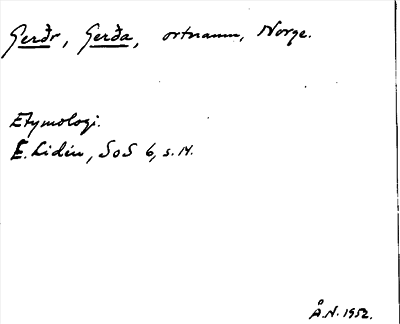 Gerðr, Gerða, ortnamn, Norge.
Etymologi.
E. Lidén, SoS 6, s. 14.
Å.N. 1952.